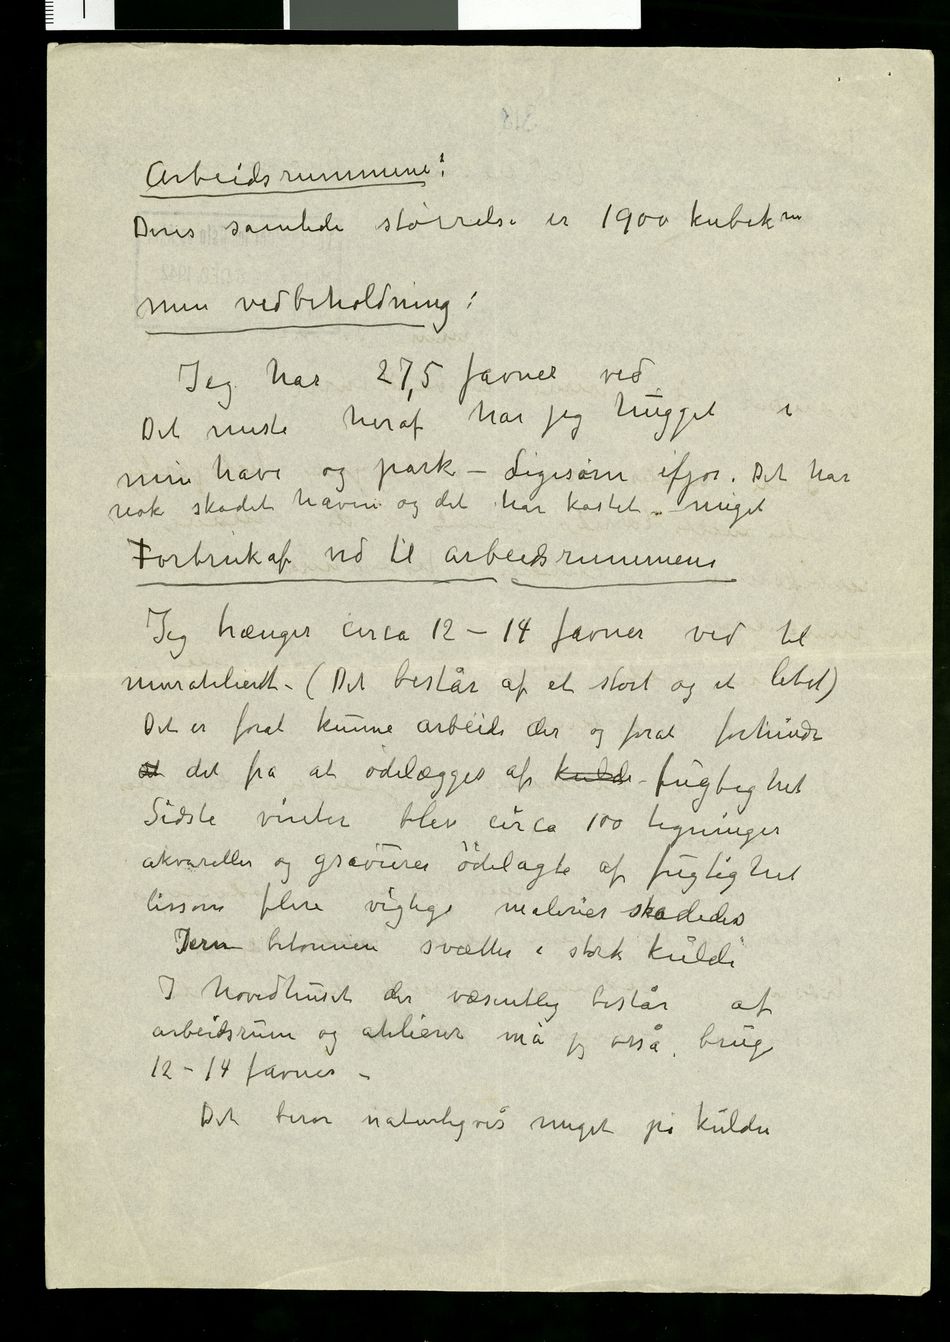 Arbeidsrummene:
Deres samlede størrelse er 1900 kubik m
Min vedbeholdning:
Jeg har 27,5 favner ved
Det meste heraf har jeg hugget i
min have og park – Ligesom ifjor. Det har
nok skadet haven og det har kostet meget
Forbruk af ved til arbeidsrummene
Jeg trænger circa 12 – 14 favner ved til
muratelieret – (Det består af et stort og et litet)
Det er forat kunne arbeide der og forat forhindre
at det fra at ødelægges af kulde fugtighet
Sidste vinter blev circa 100 tegninger
akvareller og gravurer ödelagte af fugtighet
lissom flere vigtige malerier skadedes
Jern betonnen svætter i sterk kulde
I hovedhuset der væsentlig består af
arbeidsrum og atelierer må jeg også bruge
12 – 14 favner –
Det beror naturligvis meget på kulden